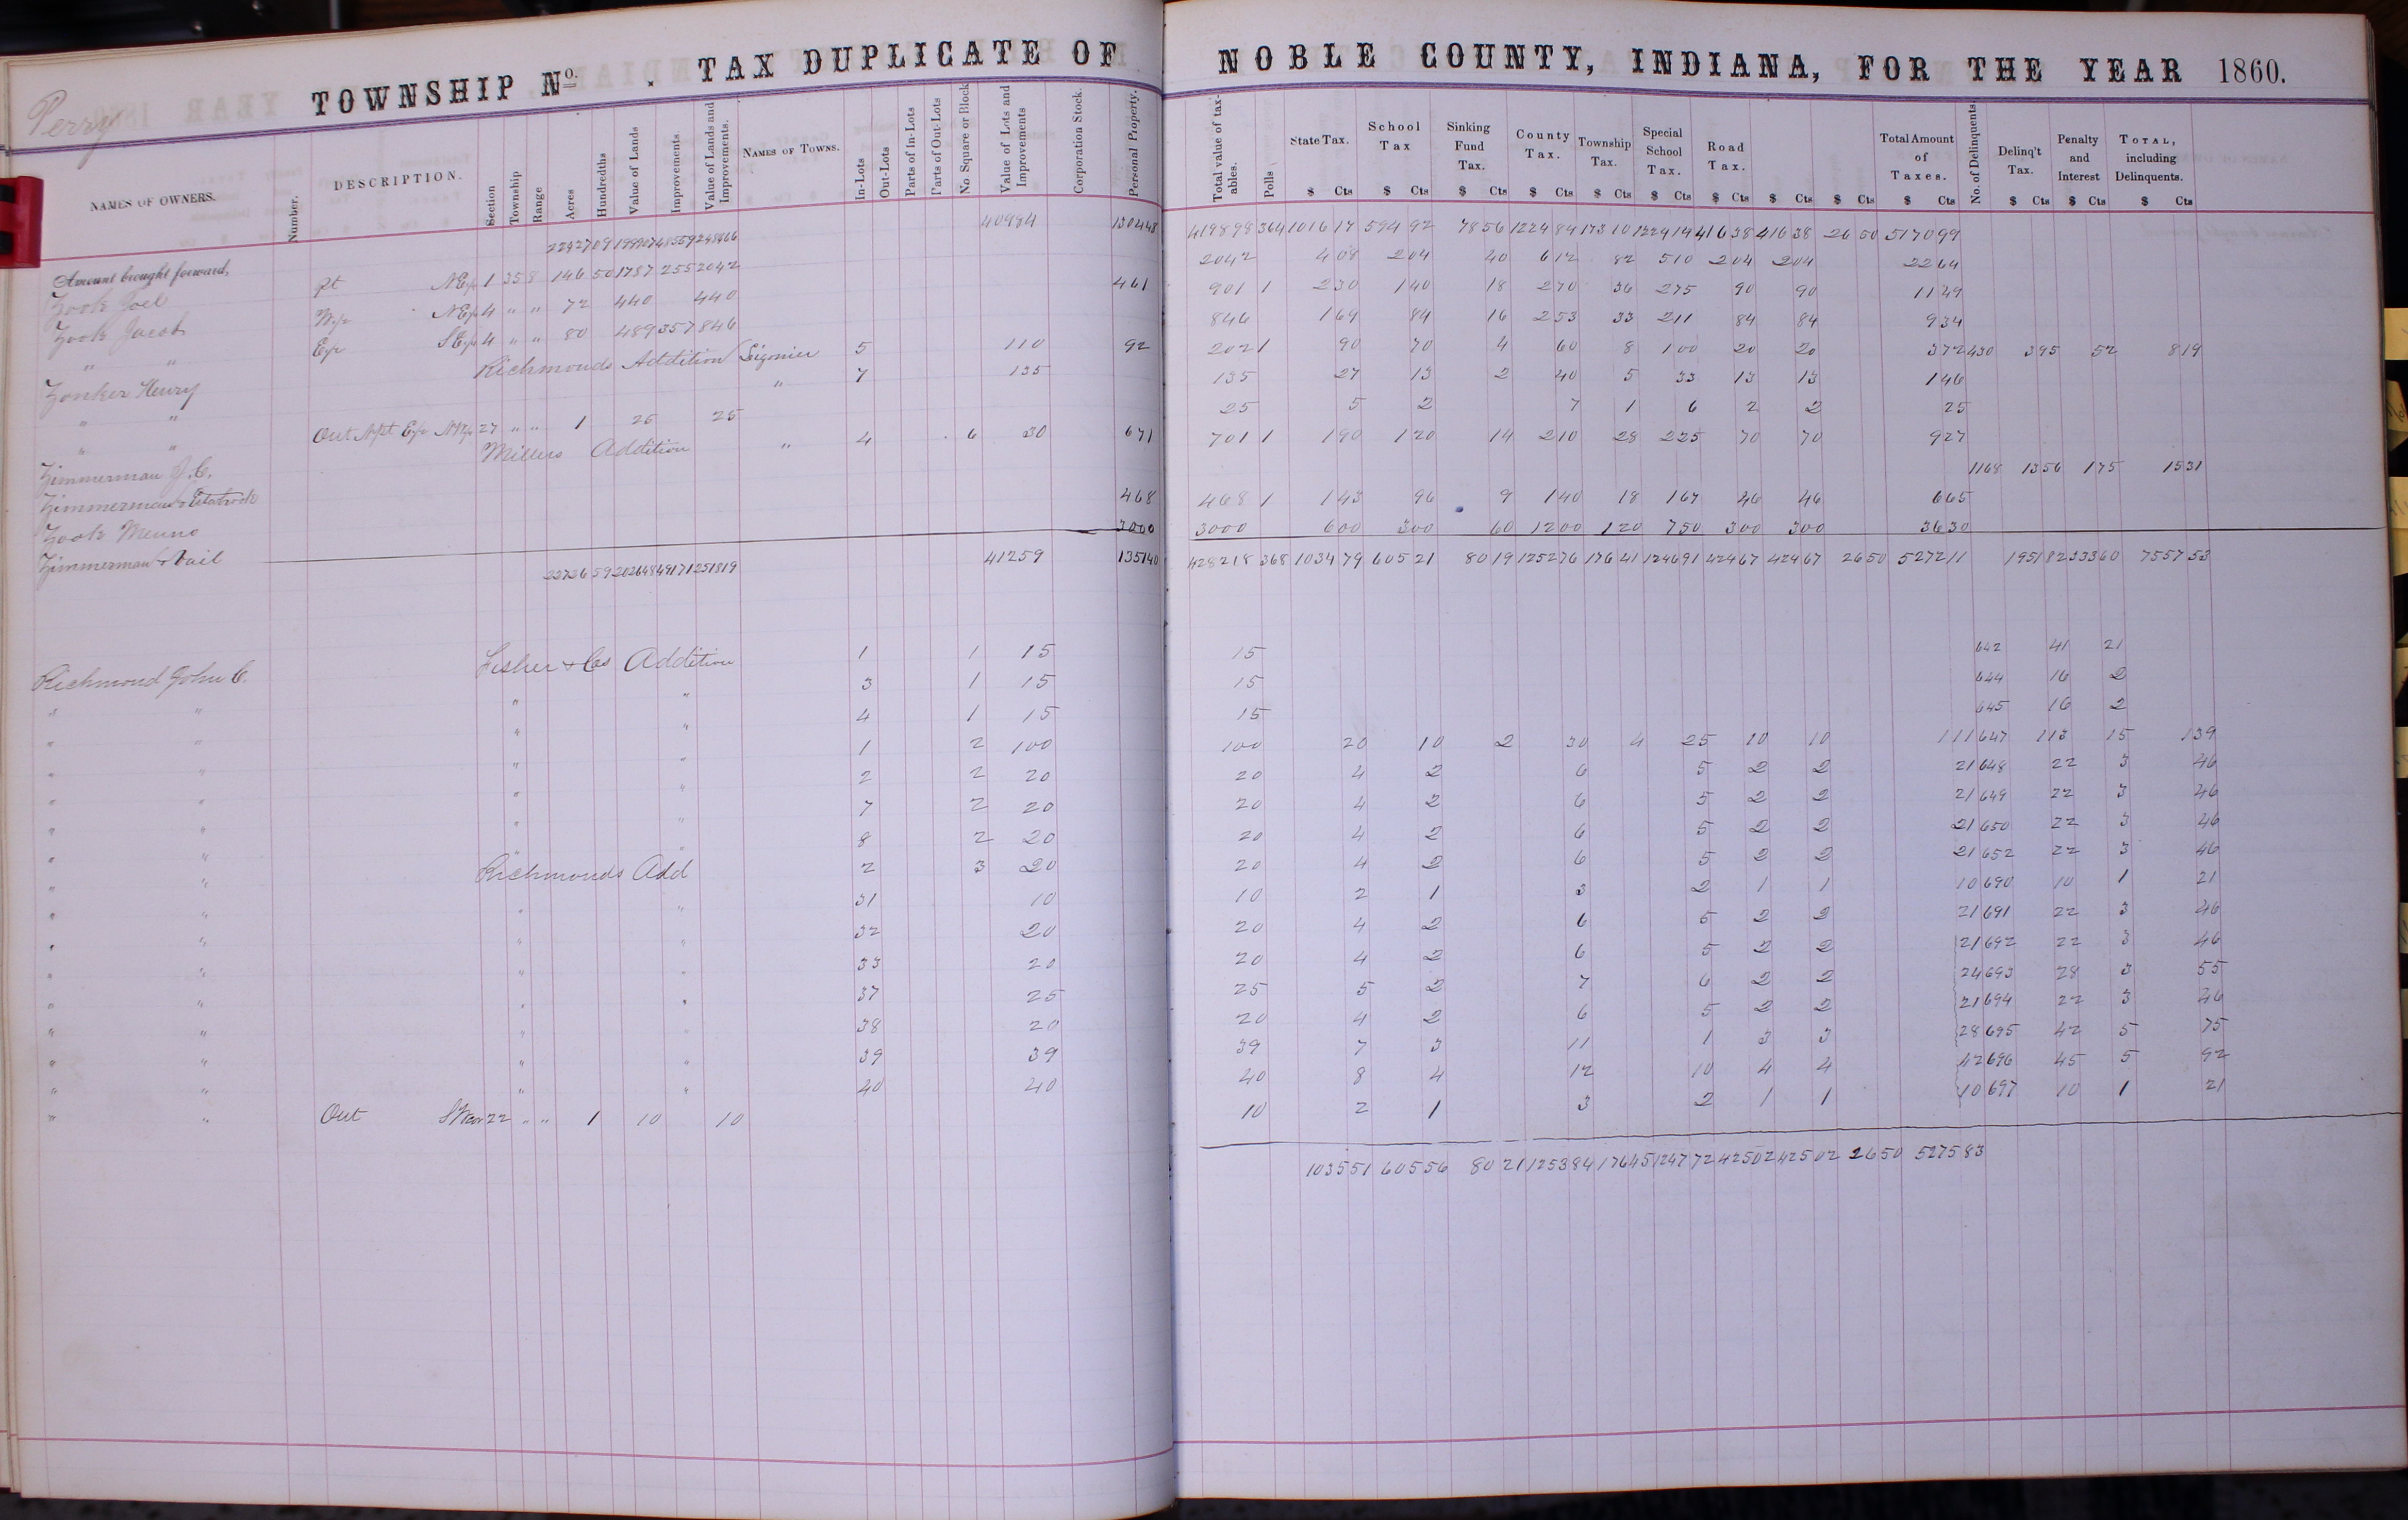 Perry
TOWNSHIP No. . TAX DUPLICATE OF NOBLE COUNTY, INDIANA, FOR THE YEAR 1860.
NAMES OF OWNERS. Number. DESCRIPTION. Section Township Range Acres Hundredths Value of Lands Improvements. Value of Lands and Improvements. NAMES OF TOWNS. In-Lots Out-Lots Parts of In-Lots Parts of Out-Lots No Square or Block Value of Lots and Improvements Corporation Stock. Personal Property. Total value of tax-ables. Polls State Tax. School Tax Sinking Fund Tax. County Tax. Township Tax. Special School Tax. Road Tax. Total Amount of Taxes. No. of Delinquents. Delinq't Tax. Penalty and Interest TOTAL, including Delinquents.
$ Cts $ Cts $ Cts $ Cts $ Cts $ Cts $ Cts $ Cts $ Cts $ Cts $ Cts $ Cts $ Cts
Amount brought forward, 22427 09 199907 48559 248466 40984 130448 419898 364 1016 17 594 92 78 56 1224 84 173 10 1224 14 416 38 416 38 26 50 5170 99
Zook Joel pt NE/4 1 35 8 146 50 1787 255 2042 2042 4 08 2 04 40 6 12 82 5 10 2 04 2 04 22 64
Zook Jacob W/2 NE/4 4 " " 72 440 440 461 901 1 2 30 1 40 18 2 70 36 2 75 90 90 11 49
" " E/2 SE/4 4 " " 80 489 357 846 846 1 69 84 16 2 53 33 2 11 84 84 9 34
Zonker Henry Richmonds Addition Ligonier 5 110 92 202 1 90 70 4 60 8 1 00 20 20 3 72 430 3 95 52 8 19
" " " 7 135 135 27 13 2 40 5 33 13 13 1 46
" " Out N pt E/2 NW/4 27 " " 1 25 25 25 5 2 7 1 6 2 2 25
Zimmerman J. C. Millers Addition " 4 6 30 671 701 1 1 90 1 20 14 2 10 28 2 25 70 70 9 27
Zimmerman & 1168 13 56 1 75 15 31
Zook Menno 468 468 1 1 43 96 9 1 40 18 1 67 46 46 6 65
Zimmerman & Vail 3000 3000 6 00 3 00 60 12 00 1 20 7 50 3 00 3 00 36 30
22726 59 202648 49171 251819 41259 135140 428218 368 1034 79 605 21 80 19 1252 76 176 41 1246 91 424 67 424 67 26 50 5272 11 1951 82 333 60 7557 53
Richmond John C. Fisher & Cos Addition 1 1 15 15 642 41 21
" " " " 3 1 15 15 644 16 2
" " " " 4 1 15 15 645 16 2
" " " " 1 2 100 100 20 10 2 30 4 25 10 10 1 11 647 1 13 15 1 39
" " " " 2 2 20 20 4 2 6 5 2 2 21 648 22 3 46
" " " " 7 2 20 20 4 2 6 5 2 2 21 649 22 3 46
" " " " 8 2 20 20 4 2 6 5 2 2 21 650 22 3 46
" " Richmonds Add 2 3 20 20 4 2 6 5 2 2 21 652 22 3 46
" " " " 31 10 10 2 1 3 2 1 1 10 690 10 1 21
" " " " 32 20 20 4 2 6 5 2 2 21 691 22 3 46
" " " " 33 20 20 4 2 6 5 2 2 21 692 22 3 46
" " " " 37 25 25 5 2 7 6 2 2 24 693 28 3 55
" " " " 38 20 20 4 2 6 5 2 2 21 694 22 3 46
" " " " 39 39 39 7 3 11 1 3 3 28 695 42 5 75
" " " " 40 40 40 8 4 12 10 4 4 42 696 45 5 92
" " Out 22 " " 1 10 10 10 2 1 3 2 1 1 10 697 10 1 21
1035 51 605 56 80 21 1253 84 176 45 1247 72 425 02 425 02 26 50 5275 83